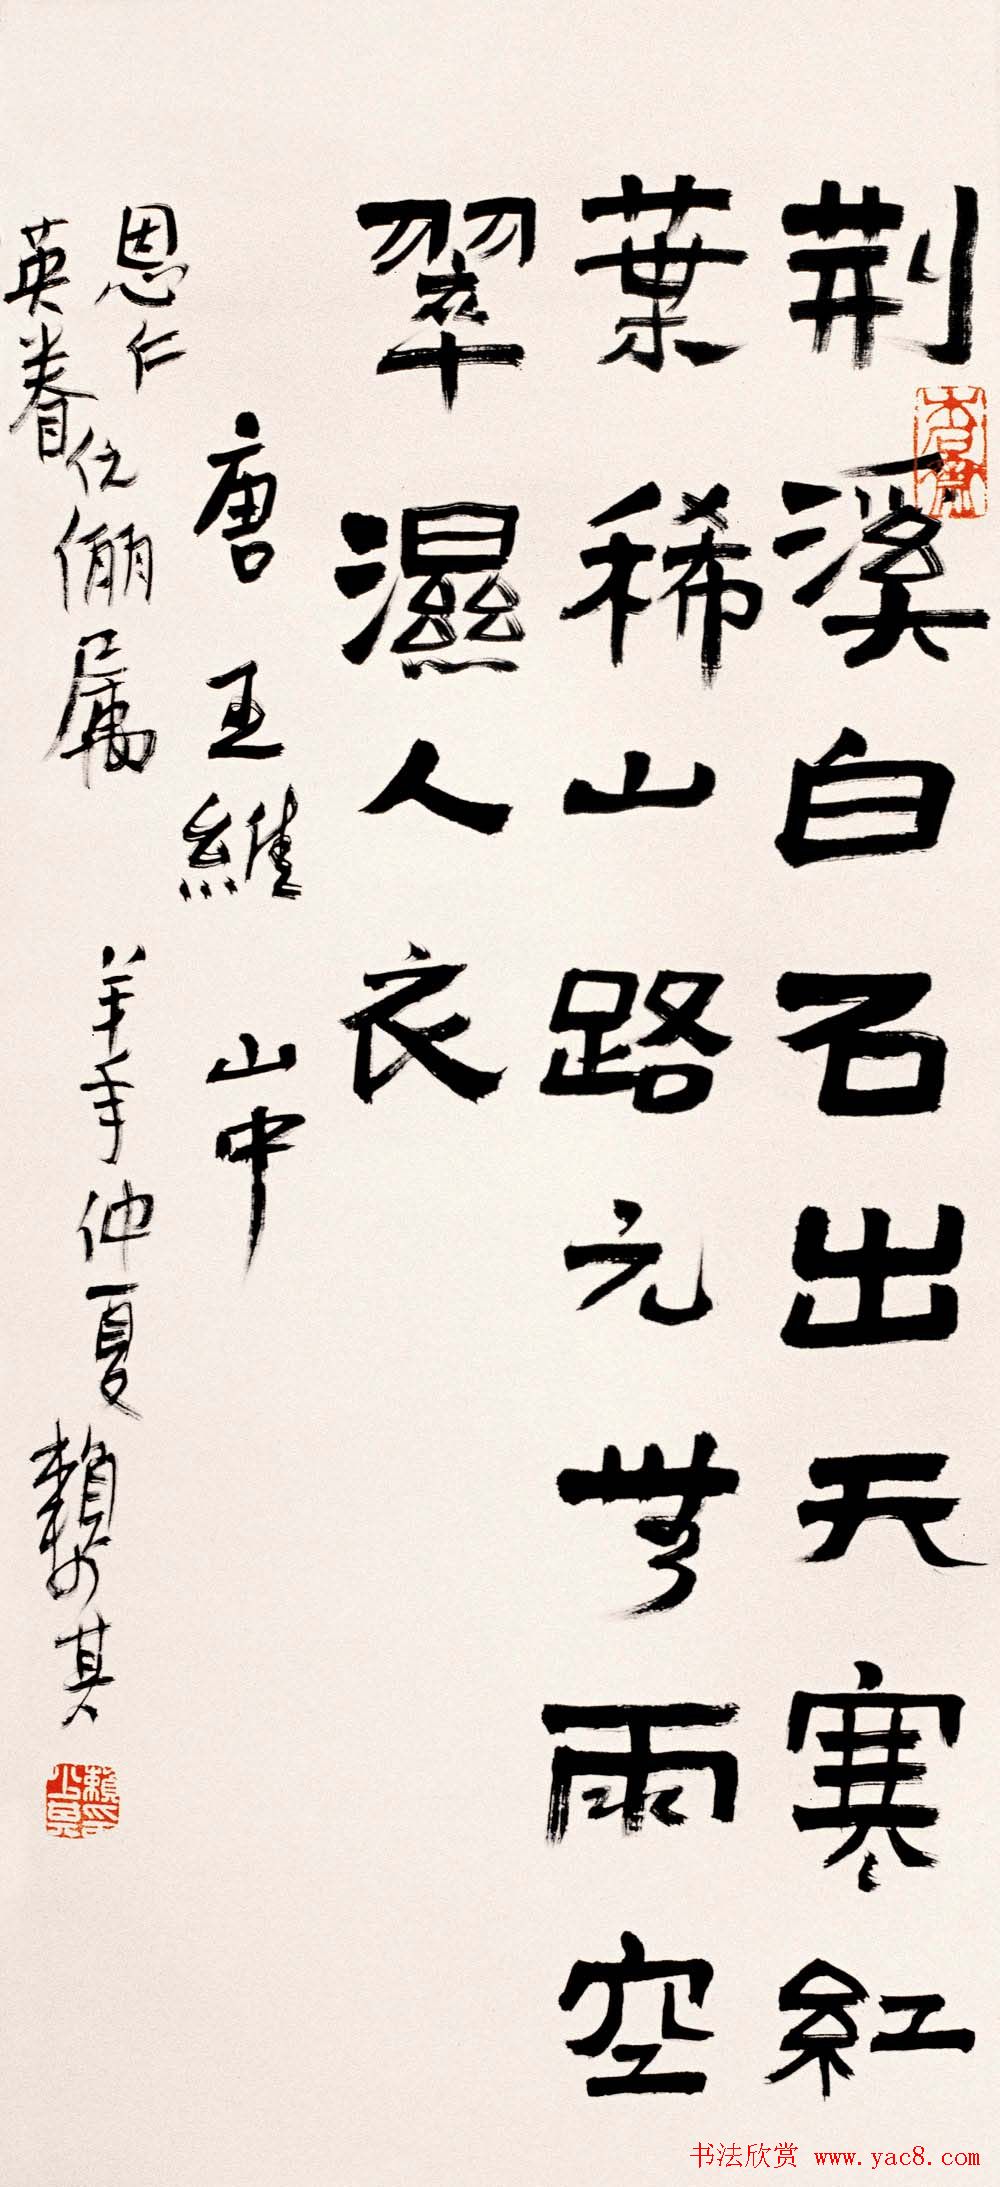 荆溪白石出天寒紅
葉稀山路元無雨空
翠濕人衣
唐王維 山中
恩仁
英眷伉俪属 羊年仲夏 賴少其
木石齋
书法欣赏 www.yac8.com